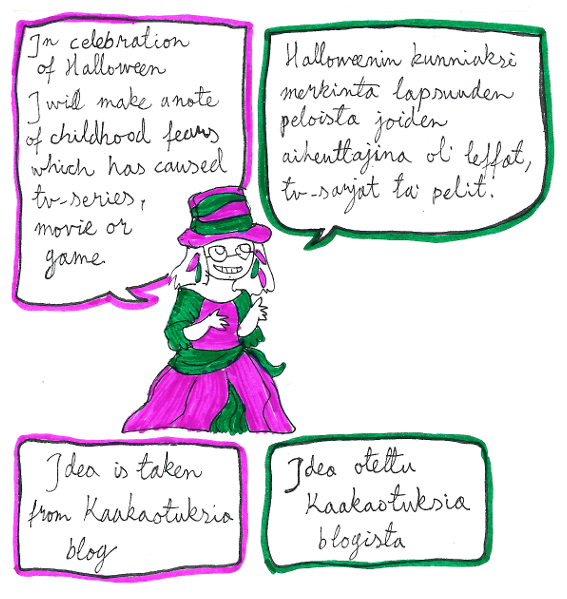 In celebration
of Halloween
I will make a note
of childhood fears
which has caused
tv-series,
movie or
game.
Halloweenin kunniaksi
merkintä lapsuuden
peloista joiden
aiheuttajina oli leffat,
tv-sarjat tai pelit.
Idea is taken
from Kaakaotuksia
blog
Idea otettu
Kaakaotuksia
blogista